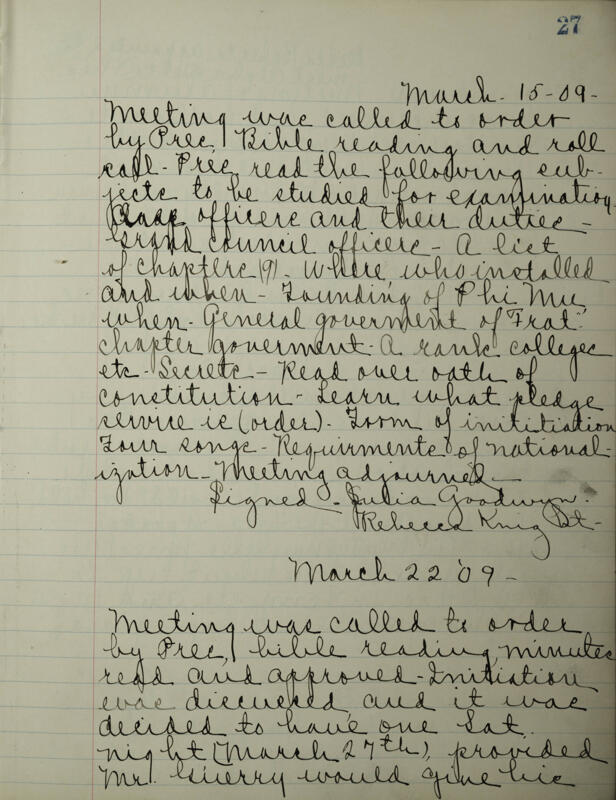 27
March. 15-09-
Meeting was called to order
by Pres, Bible reading and roll
call. Pres, read the following sub-
jects to be studied for examination,
officers and their duties -
Grand council officers - A list
of chapters (9). Where, who installed
and when - Founding of Phi Mu,
when. General goverment of Frat.
chapter goverment. A rank colleges
etc. Secrets - Read over oath of
constitution. Learn what pledge
service is (order). Form of inititiation
Four songs. Requirments of national-
ization - Meeting adjourned -
Signed - Julia Goodwyn.
Rebecca Knight -
March 22 '09 -
Meeting was called to order
by Pres, bible reading, minutes
read and approved - Initiation
was discussed and it was
decided to have one Sat.
night (March 27th), provided
Mr. Guerry would give his